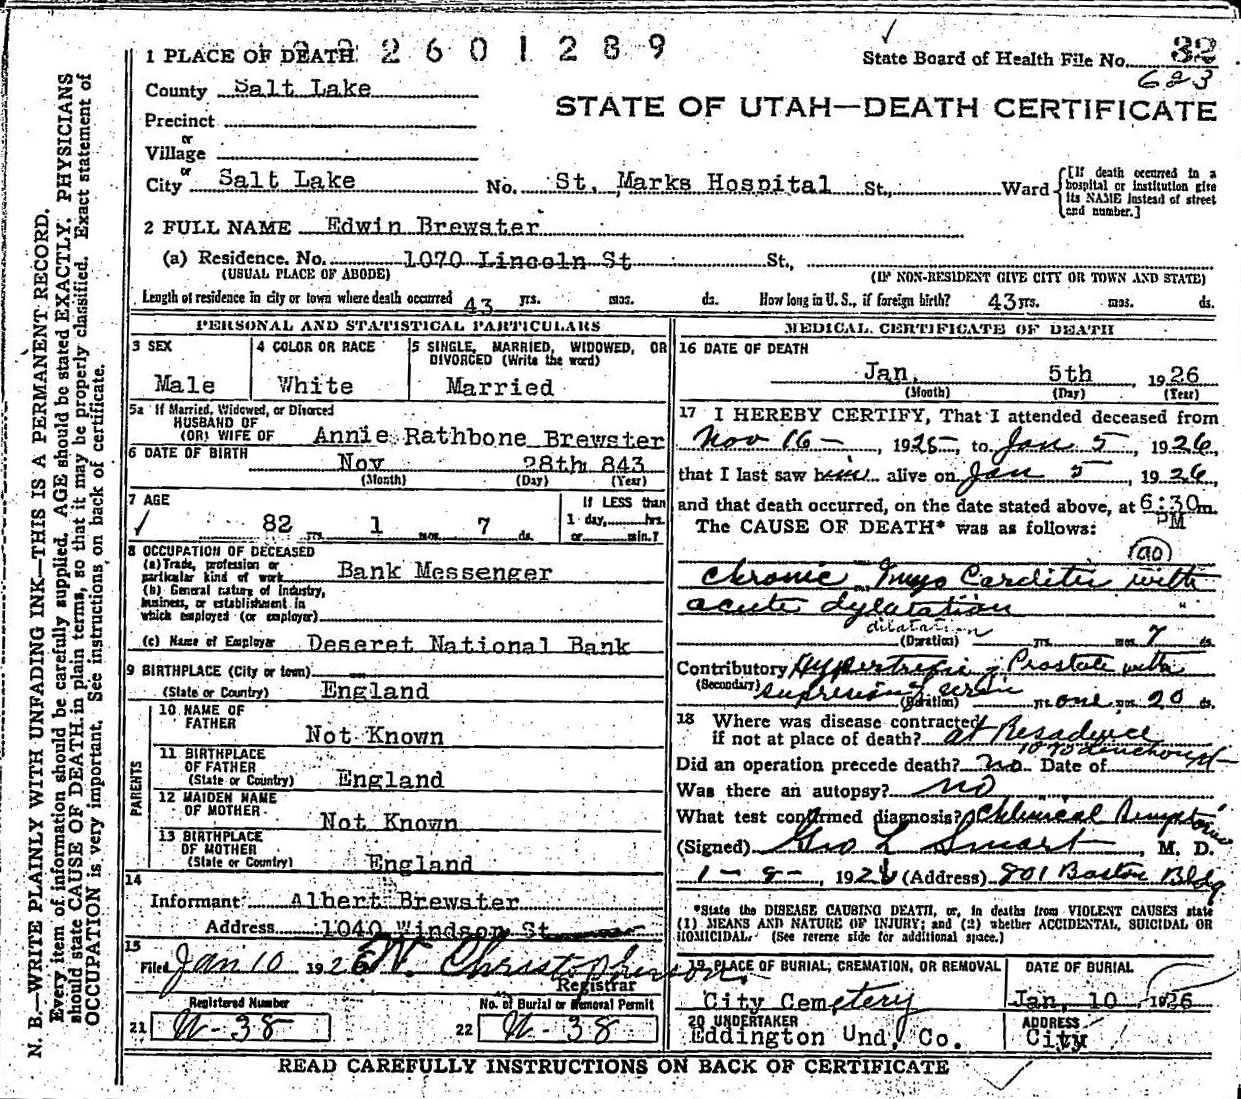 N. B.—WRITE PLAINLY WITH UNFADING INK—THIS IS A PERMANENT RECORD.
Every item of information should be carefully supplied. AGE should be stated EXACTLY. PHYSICIANS
should state CAUSE OF DEATH in plain terms, so that it may be properly classified. Exact statement of
OCCUPATION is very important. See instructions on back of certificate.
2601289
1 PLACE OF DEATH
State Board of Health File No. 32
623
County Salt Lake
STATE OF UTAH—DEATH CERTIFICATE
Precinct
or
Village
or
City Salt Lake No. St. Marks Hospital St., Ward
[If death occurred in a
hospital or institution give
its NAME instead of street
and number.]
2 FULL NAME Edwin Brewster
(a) Residence. No. 1070 Lincoln St St.,
(USUAL PLACE OF ABODE) (IF NON-RESIDENT GIVE CITY OR TOWN AND STATE)
Length of residence in city or town where death occurred 43 yrs. mos. ds. How long in U. S., if foreign birth? 43 yrs. mos. ds.
PERSONAL AND STATISTICAL PARTICULARS
3 SEX
Male
4 COLOR OR RACE
White
5 SINGLE, MARRIED, WIDOWED, OR
DIVORCED (Write the word)
Married
5a If Married, Widowed, or Divorced
HUSBAND OF
(OR) WIFE OF Annie Rathbone Brewster
6 DATE OF BIRTH
Nov 28th 843
(Month) (Day) (Year)
7 AGE
82 yrs. 1 mos. 7 ds.
If LESS than
1 day, hrs.
or min.?
8 OCCUPATION OF DECEASED
(a) Trade, profession or
particular kind of work Bank Messenger
(b) General nature of Industry,
business, or establishment in
which employed (or employer)
(c) Name of Employer Deseret National Bank
9 BIRTHPLACE (City or town)
(State or Country) England
PARENTS
10 NAME OF
FATHER Not Known
11 BIRTHPLACE
OF FATHER
(State or Country) England
12 MAIDEN NAME
OF MOTHER Not Known
13 BIRTHPLACE
OF MOTHER
(State or Country) England
14
Informant Albert Brewster
Address 1040 Windson St
15
Filed Jan 10 1926 W. Christopherson.
Registrar
Registered Number
21 U-38
No. of Burial or Removal Permit
22 U-38
MEDICAL CERTIFICATE OF DEATH
16 DATE OF DEATH
Jan. 5th, 1926
(Month) (Day) (Year)
17 I HEREBY CERTIFY, That I attended deceased from
Nov 16—, 1925, to Jan 5, 1926,
that I last saw him alive on Jan 5, 1926,
and that death occurred, on the date stated above, at 6:30 m.
PM
The CAUSE OF DEATH* was as follows:
(90)
Chronic Myo Carditis with
acute dylatation
dilatation
(Duration) yrs. mos. 7 ds.
Contributory Hypertrefia of Prostate with
(Secondary) supresion of
(Duration) yrs. one mos. 20 ds.
18 Where was disease contracted
if not at place of death? at Resadence
Did an operation precede death? no Date of
Was there an autopsy? no
What test confirmed diagnosis? Clinical
(Signed) Geo L Smart, M. D.
1-8-, 1926 (Address) 801 Boston Bldg
*State the DISEASE CAUSING DEATH, or, in deaths from VIOLENT CAUSES state
(1) MEANS AND NATURE OF INJURY; and (2) whether ACCIDENTAL, SUICIDAL OR
HOMICIDAL. (See reverse side for additional space.)
19 PLACE OF BURIAL, CREMATION, OR REMOVAL
City Cemetery
DATE OF BURIAL
Jan. 10, 1926
20 UNDERTAKER
Eddington Und. Co.
ADDRESS
City
READ CAREFULLY INSTRUCTIONS ON BACK OF CERTIFICATE